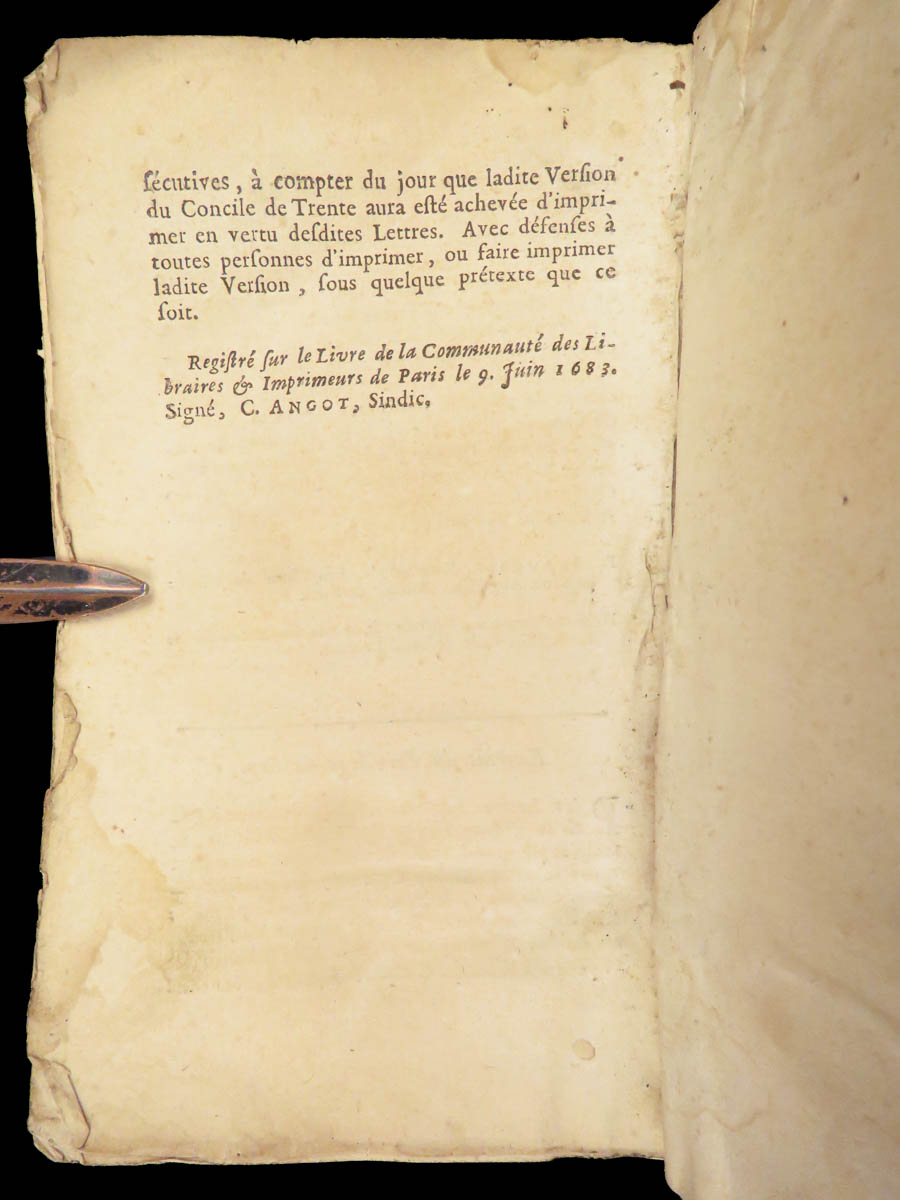 ſécutives, à compter du jour que ladite Verſion
du Concile de Trente aura eſté achevée d'impri-
mer en vertu deſdites Lettres. Avec défenſes à
toutes perſonnes d'imprimer, ou faire imprimer
ladite Verſion, ſous quelque prétexte que ce
ſoit.
Regiſtré ſur le Livre de la Communauté des Li-
braires & Imprimeurs de Paris le 9. Juin 1683.
Signé, C. ANGOT, Sindic.